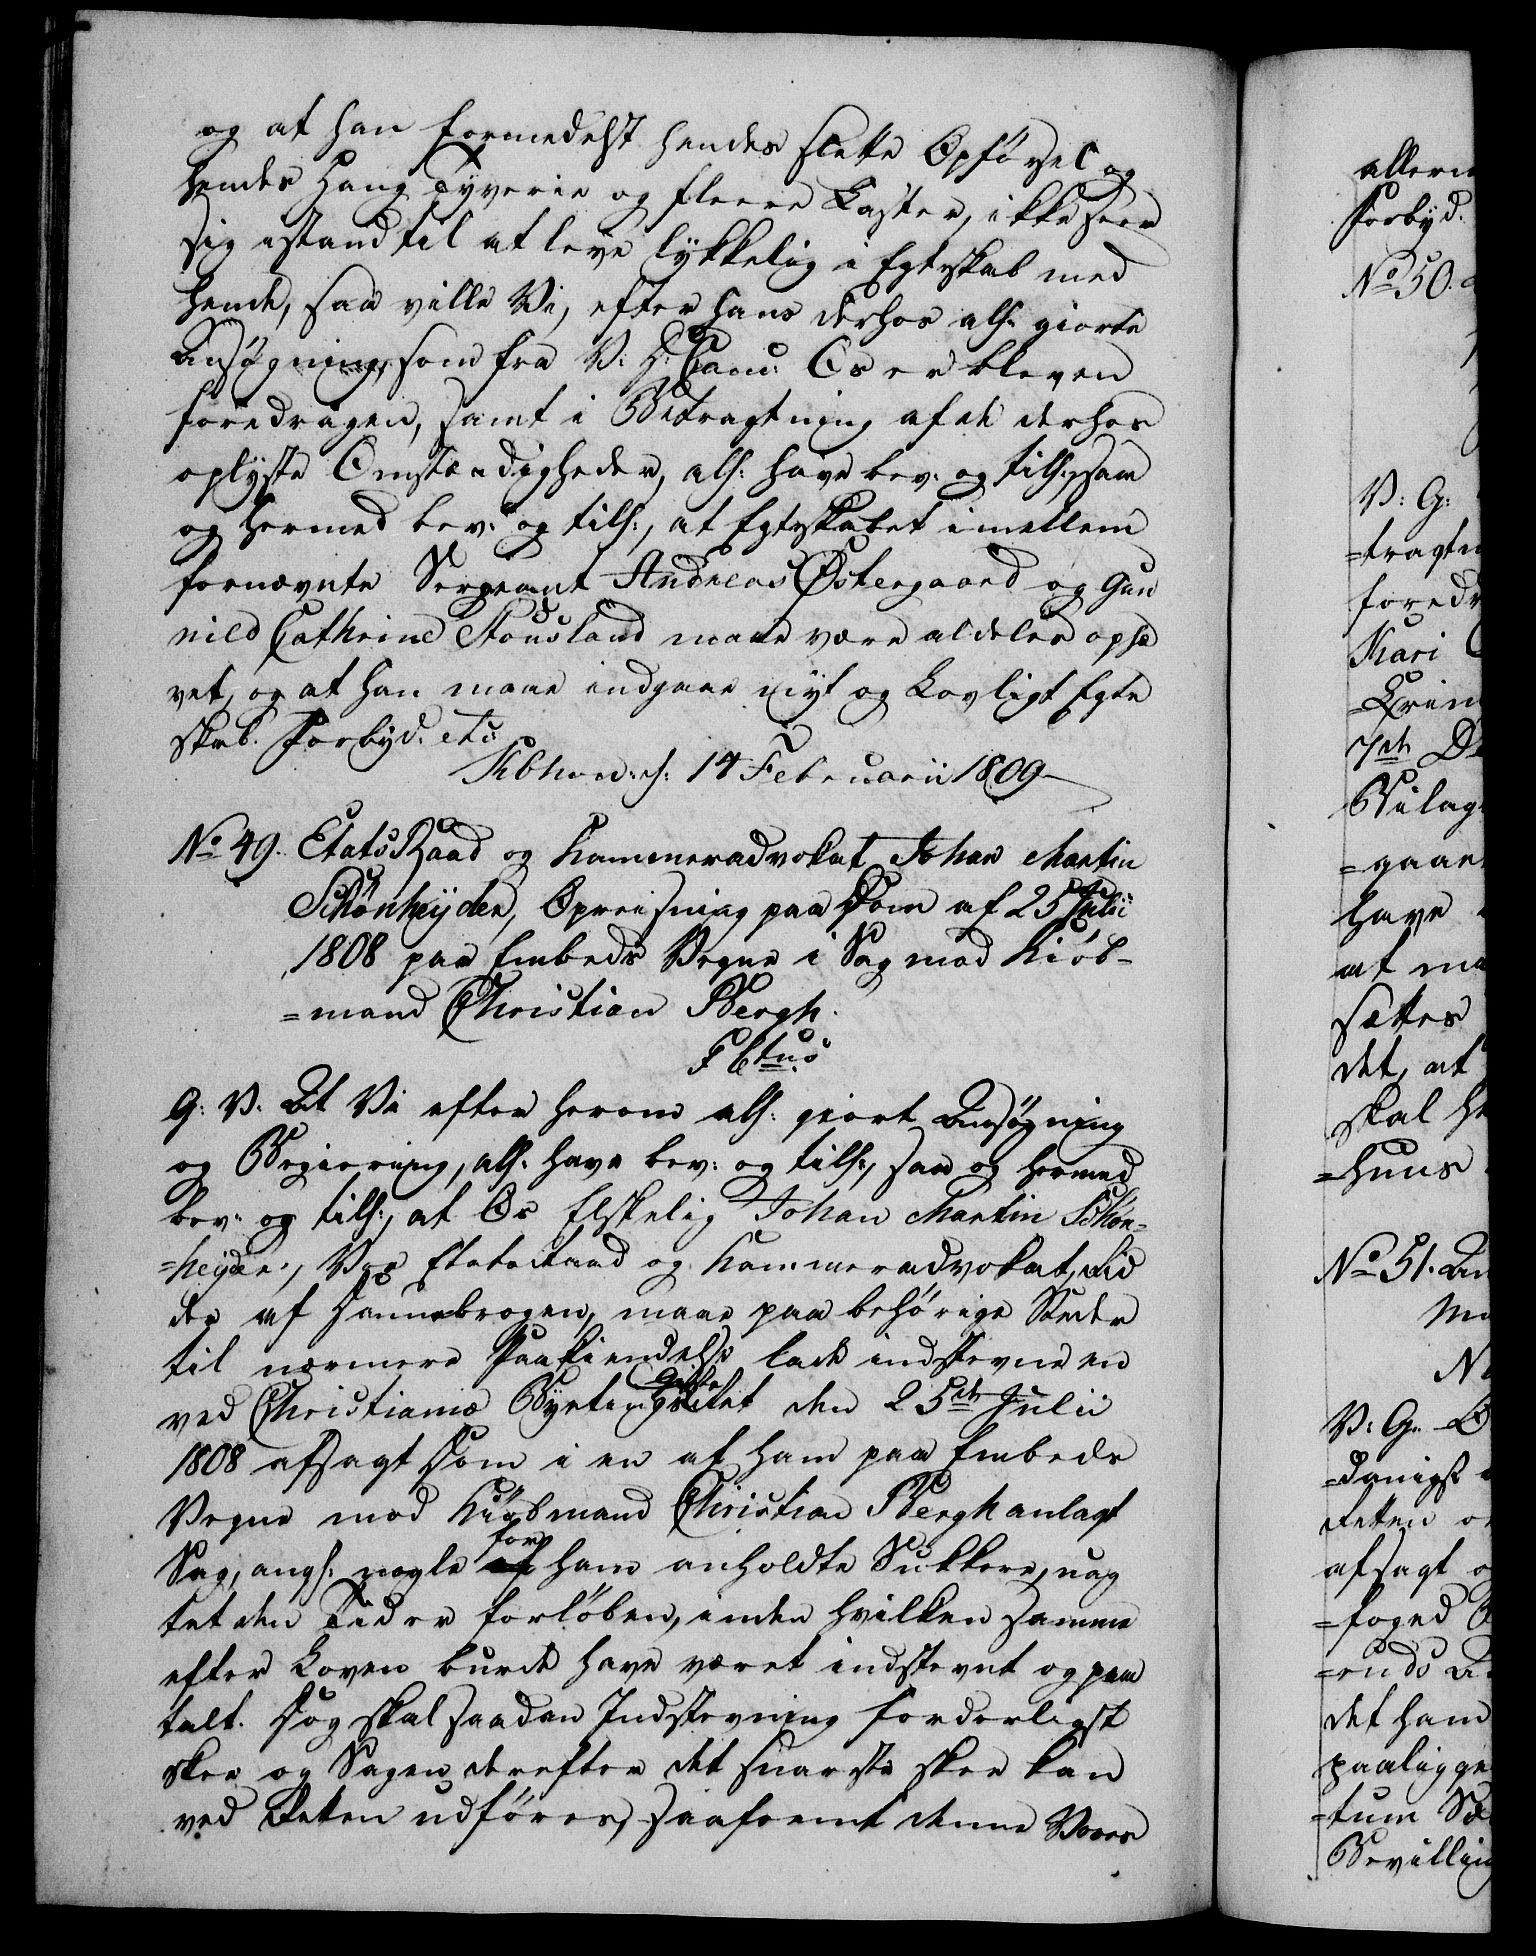 og at han formedelst hendes slette Opförsel og
hendes Hang Tyverie og fleere Laster, ikke seer
sig istand til at leve lykkelig i Egteskab med
hende, saa ville Vi, efter hans derhos alh: giorte
Ansøgning, som fra V: D: Canc: Os er bleven
foredragen, samt i Betragtning af de derhos
oplyste Omstændigheder, alh: have bev: og tilh:, saa
og hermed bev: og tilh:, at Egteskabet imellem
fornævnte Sergeant Andreas Østergaard og Gun
nild Cathrine Stousland maae være aldeles ophæ
vet, og at han maae indgaae nyt og Lovligt Egte
skab. Forbyd: etc:
Kbhavn: d: 14 Februarii 1809
No 49. Etats Raad og Kammeradvokat Johan Martin
Schönheÿder, Opreisning paa Dom af 25 Julii
1808 paa Embeds Vegne i Sag mod Kiöb-
=mand Christian Bergh.
Fbtus
G: V: At Vi efter herom alh: giort Ansøgning
og Begiering, alh: have bev: og tilh:, saa og hermed
bev: og tilh:, at Os Elskelig Johan Martin Schön-
=heÿder, Vor Etatsraad og Kammeradvokat, Rid
der af Dannebrogen, maae paa behörige Steder
til nærmere Paakiendelse lade indstevne en
ved Christianiæ Byetings Retten den 25de Julii
1808 afsagt Dom i en af ham paa Embeds
Vegne mod Kiöbmand Christian Bergh anlagt
Sag, angl: nogle for ham anholdte Sukkere, uag
tet den Tid er forlöben, inden hvilken samme
efter Loven burde have været indstevnt og paa
talt. Dog skal saadan Indstevning forderligst
skee og Sagen derefter det snareste skee kan
ved Retten udföres, saafremt denne Vores
allern
Forbyd:
No 50.
V: G:
=tragtn
foredr
Kari
=Crim
7de De
Bilag
=gaae
have
at ma
sættes
det, at
skal he
=huus
No 51. An
V: G:
=danigst
Retten
afsagt o
=foged
=ends
det ham
paaligge
=tum
Bevilling